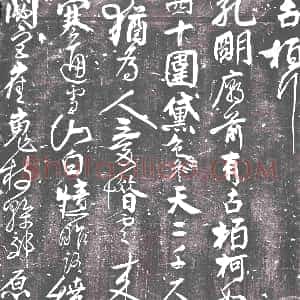 古柏行
孔明廟前有古柏柯
四十圍黛色天二千尺
猶為人愛惜雲來
寒通雪山白憶昨路繞
宮崔嵬枝幹郊原